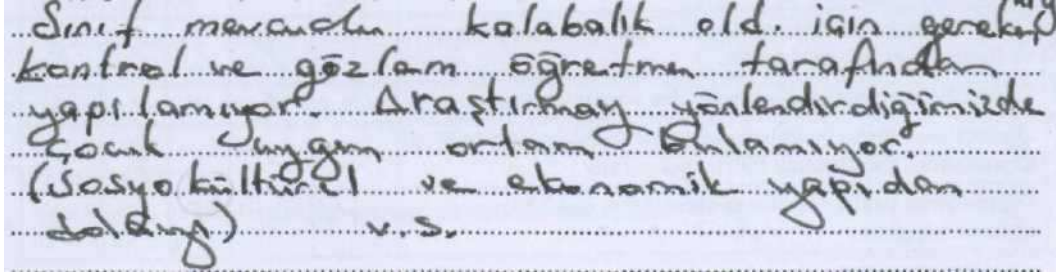 Sınıf mevcudu kalabalık old. için gereken
kontrol ve gözlem öğretmen tarafından
yapılamıyor. Araştırmay yönlendirdiğimizde
çocuk uygun ortam bulamıyor.
(Sosyo kültürel ve ekonomik yapıdan
dolayı) v.s.